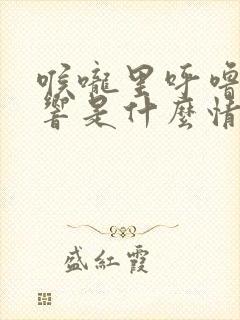 喉嚨里呼嚕
響是什麼情
盛紅霞